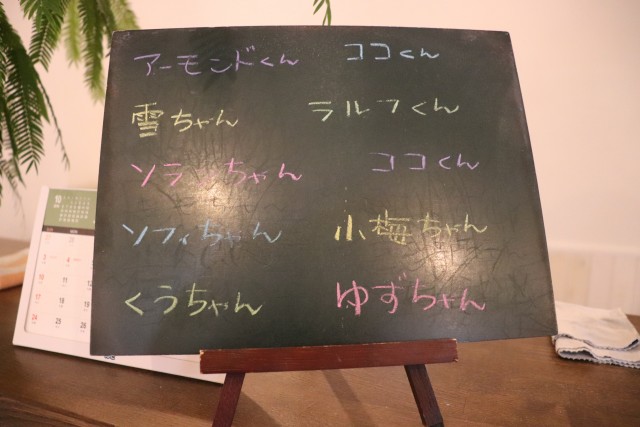 アーモンドくん ココくん
雪ちゃん ラルフくん
ソラちゃん ココくん
ソフィちゃん 小梅ちゃん
くうちゃん ゆずちゃん